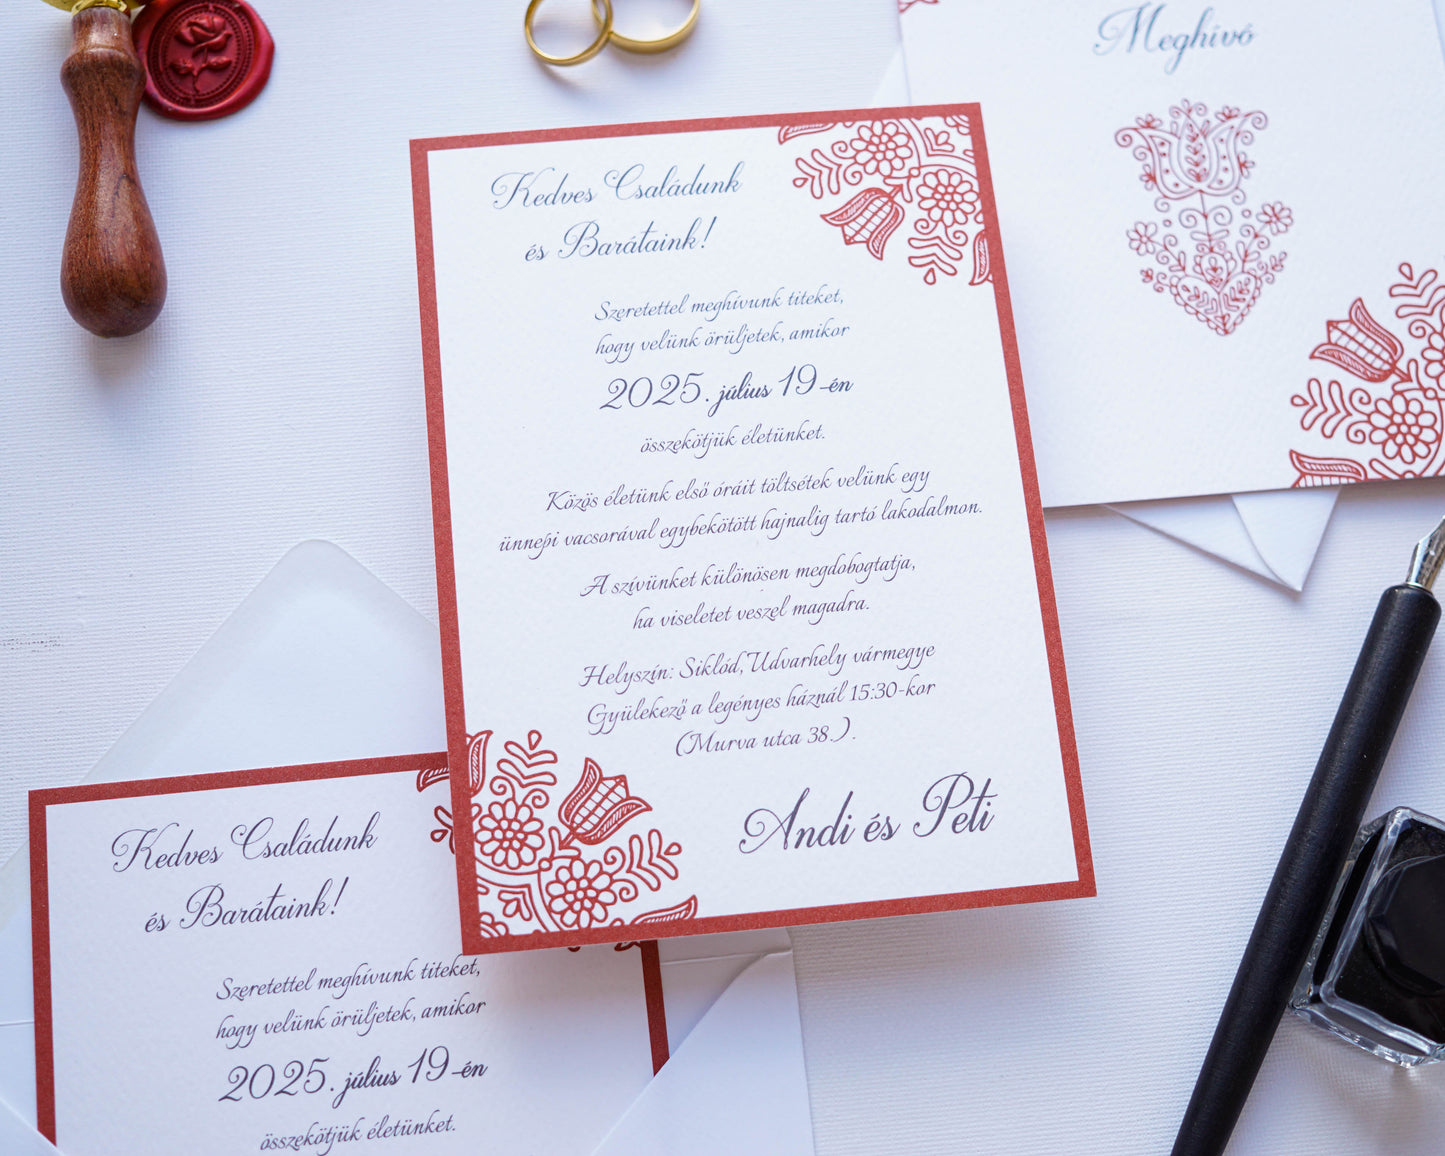 Meghívó
Kedves Családunk
és Barátaink!
Szeretettel meghívunk titeket,
hogy velünk örüljetek, amikor
2025. július 19-én
összekötjük életünket.
Közös életünk első óráit töltsétek velünk egy
ünnepi vacsorával egybekötött hajnalig tartó lakodalmon.
A szívünket különösen megdobogtatja,
ha viseletet veszel magadra.
Helyszín: Siklód, Udvarhely vármegye
Gyülekező a legényes háznál 15:30-kor
(Murva utca 38.).
Andi és Peti
Kedves Családunk
és Barátaink!
Szeretettel meghívunk titeket,
hogy velünk örüljetek, amikor
2025. július 19-én
összekötjük életünket.